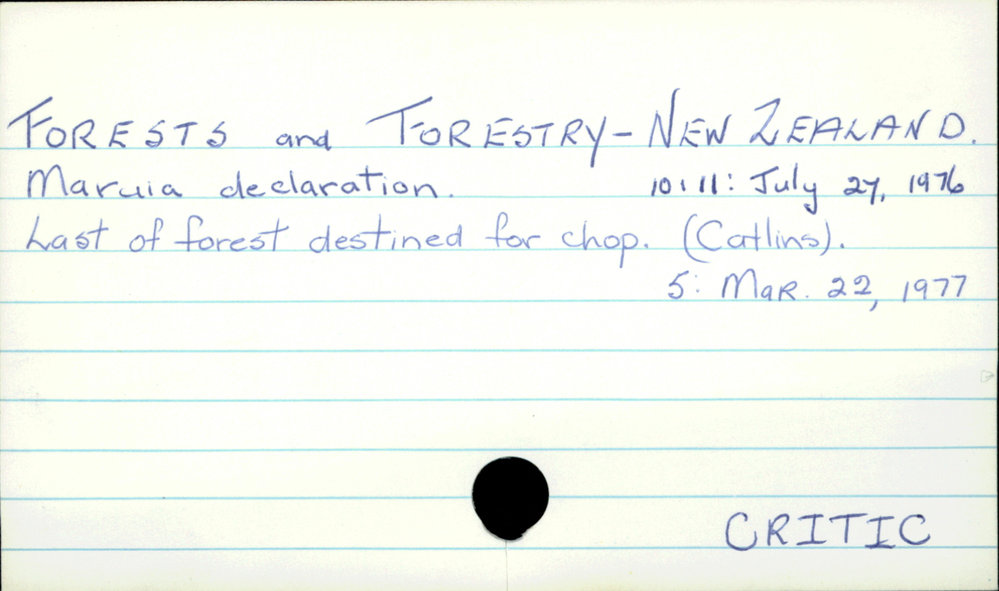 FORESTS and FORESTRY - NEW ZEALAND.
Maruia declaration. 10, 11: July 27, 1976
Last of forest destined for chop. (Catlins).
5: Mar. 22, 1977
CRITIC